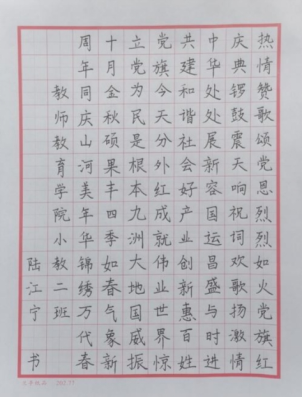 热情赞歌颂党恩烈烈如火党旗红
庆典锣鼓震天响祝词欢歌扬激情
中华处处展新容国运昌盛与时进
共建和谐社会好产业创新惠百姓
党旗今天分外红成就伟业世界惊
立党为民是根本九洲大地国威振
十月金秋硕果丰四季如春气象新
周年同庆山河美年华锦绣万代春
教师教育学院小教二班
陆江宁 书